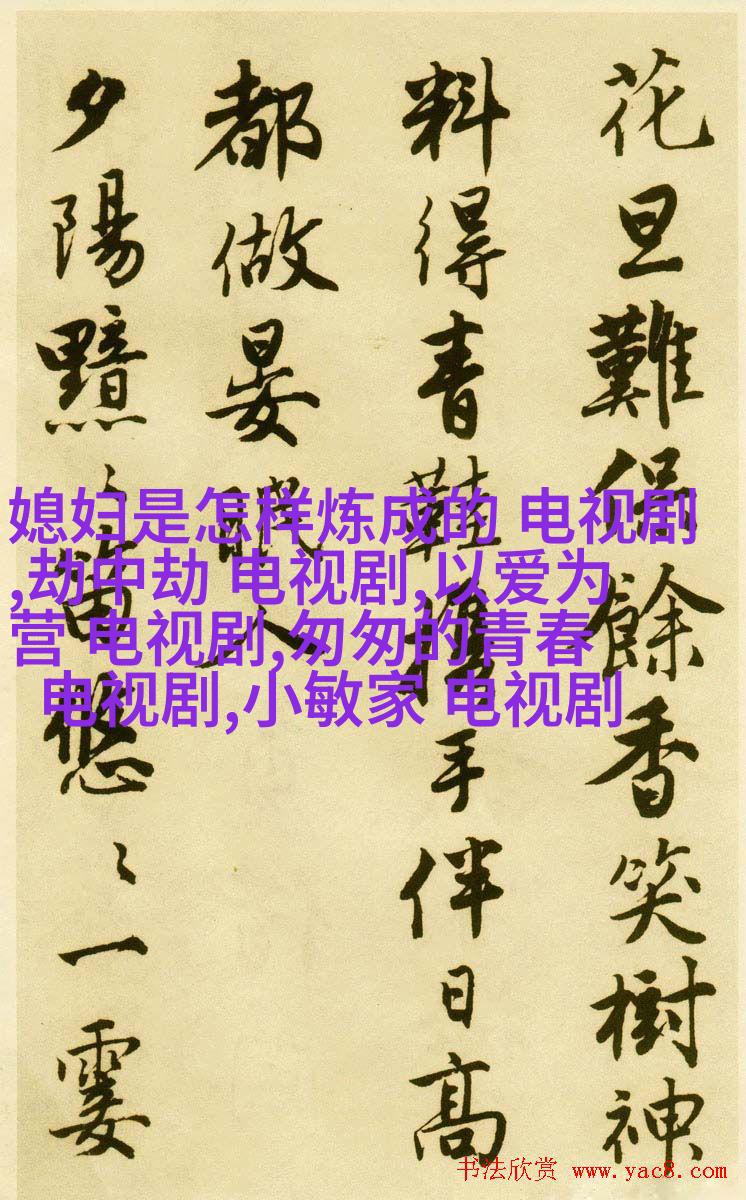 花旦難保餘香笑樹神
料得青鞋攜手伴日高
都做晏眠人
夕陽黯〻笛悠〻一霎
媳妇是怎样炼成的 电视剧
,劫中劫 电视剧,以爱为
营 电视剧,匆匆的青春
电视剧,小敏家 电视剧
书法欣赏 www.yac8.com